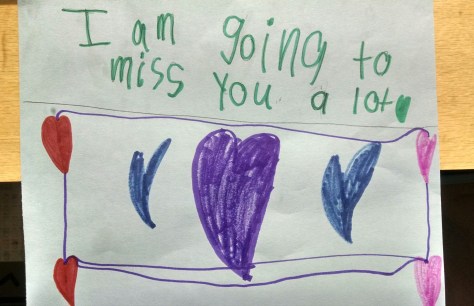 I am going to
miss you a lot